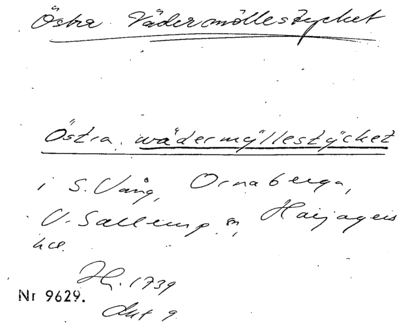 Östra Vädermöllestycket
Östra wädermyllestÿcket
i S. Vång, Ornaberga,
V. Sallerup sn, Harjagers
hd.
Hr. 1739
Nr 9629.
Akt 9